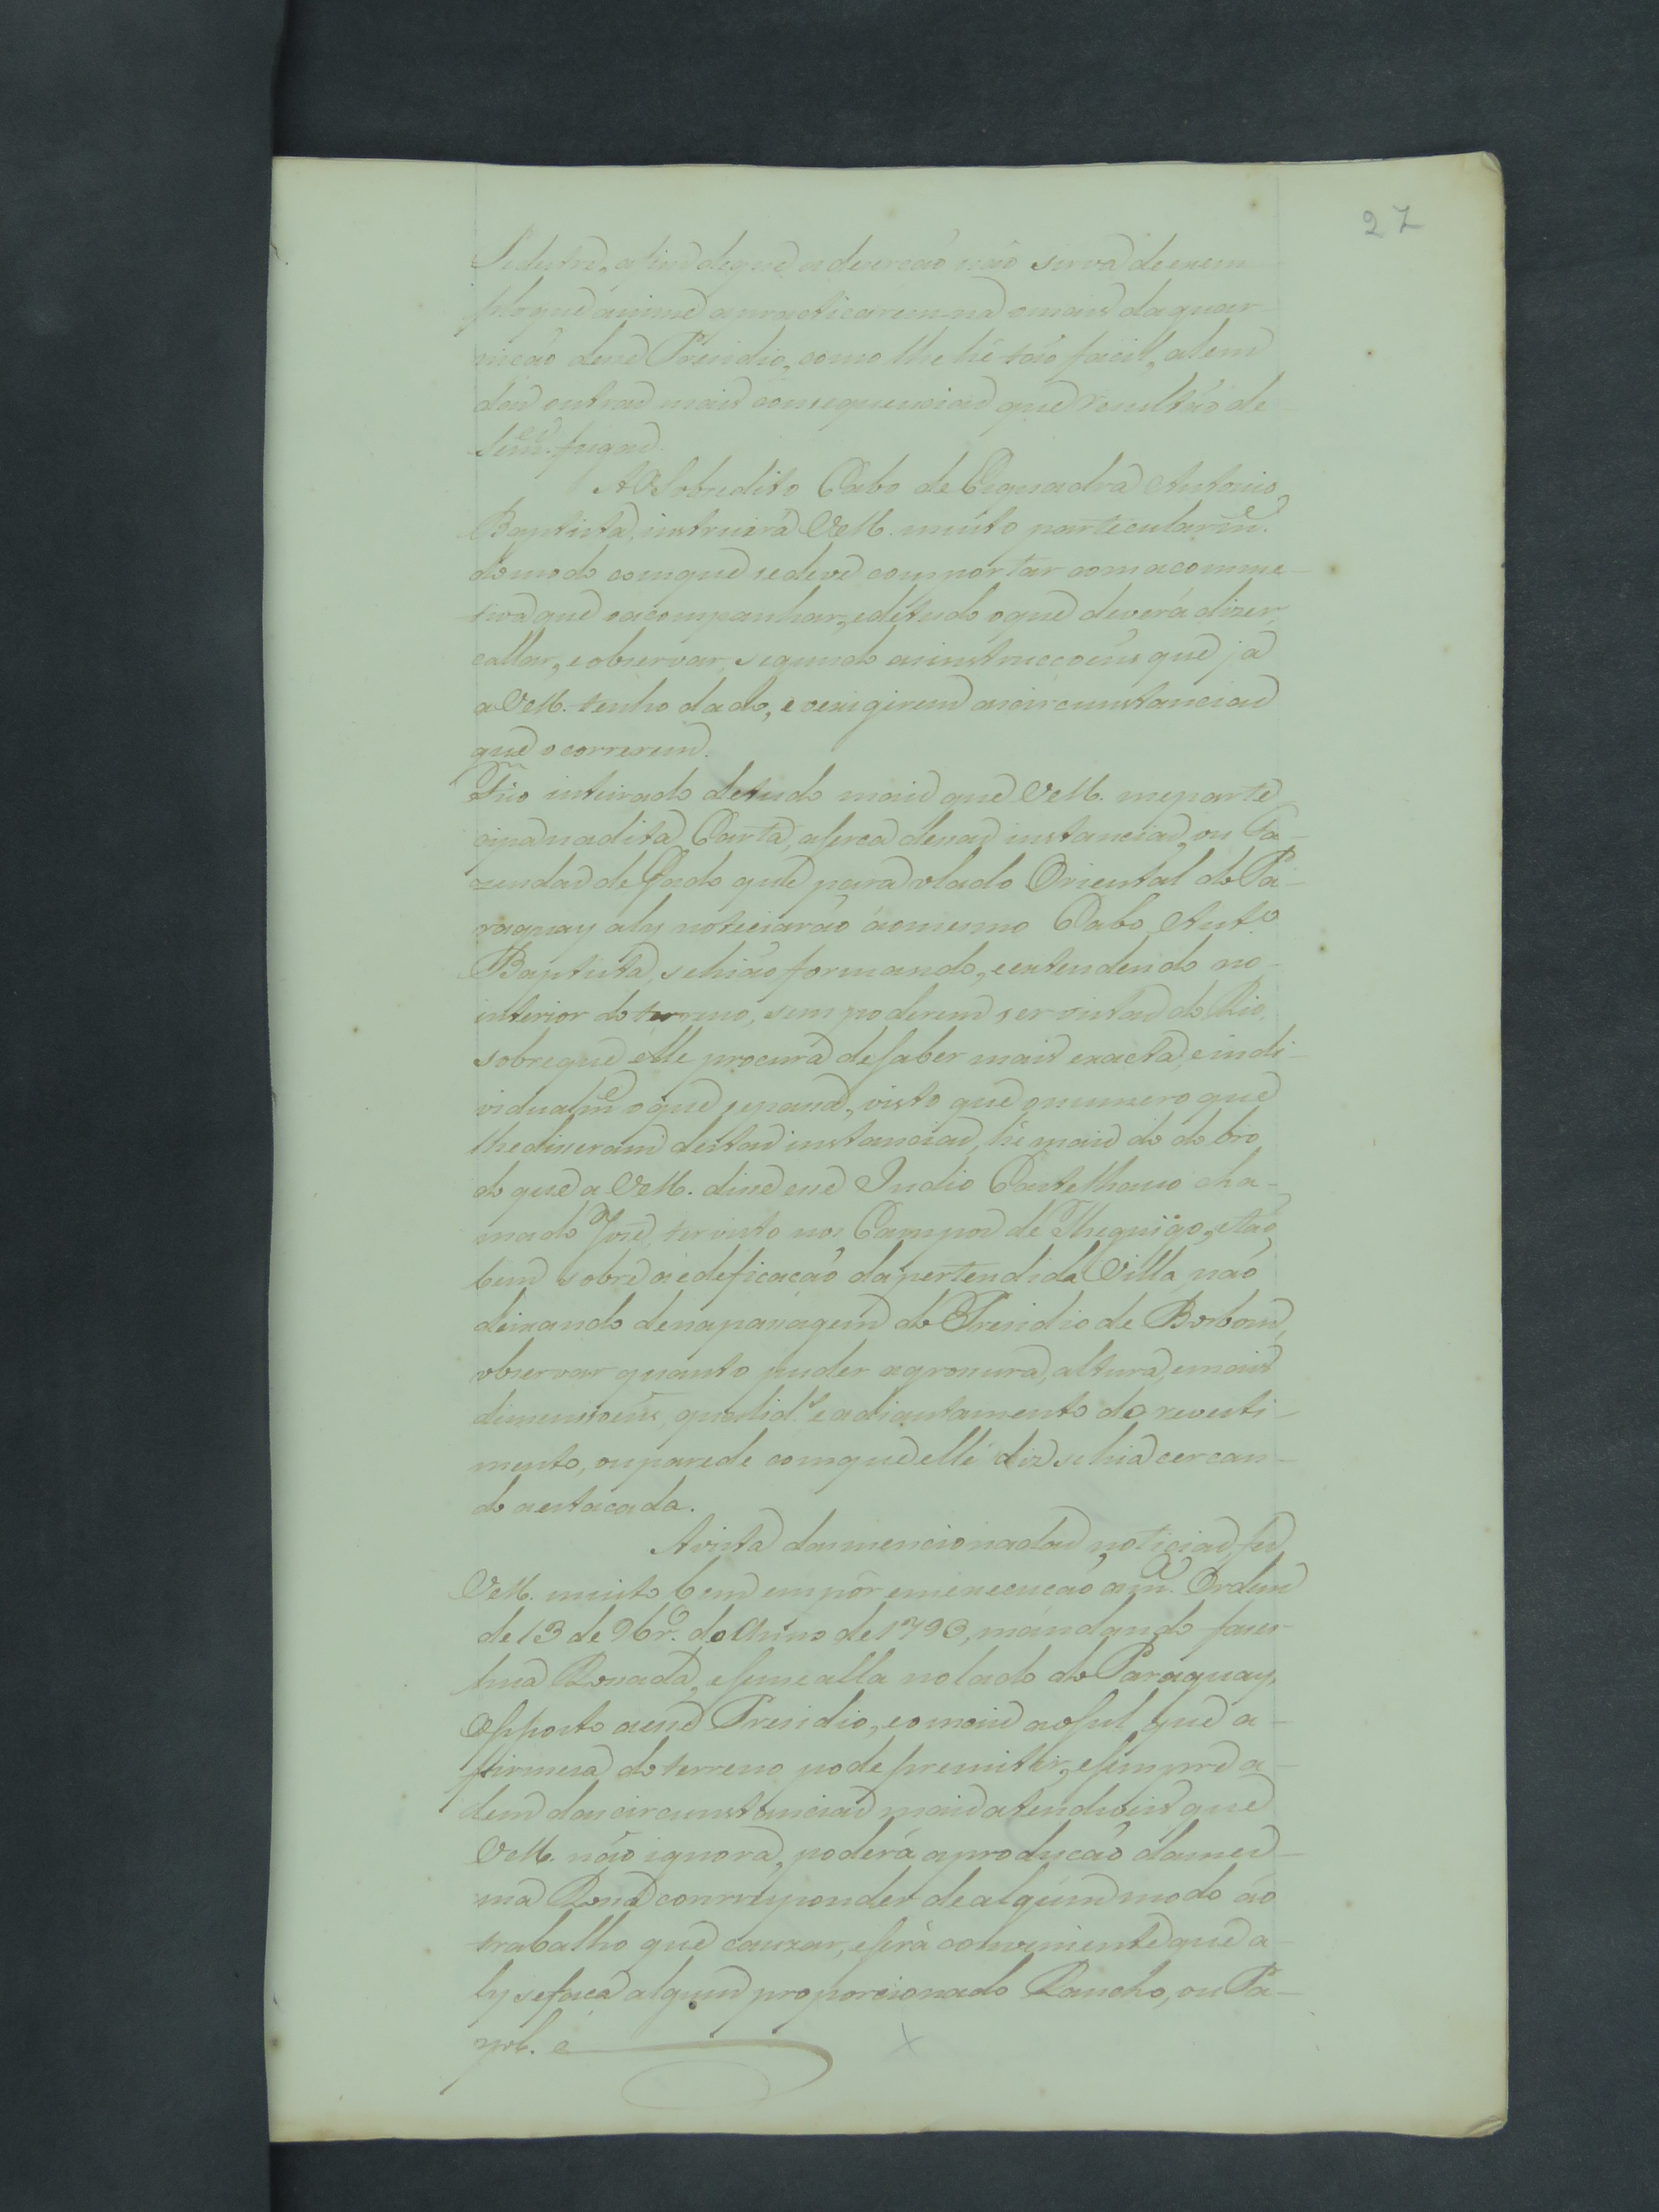 27
Pedestre, afim de que a deserção não sirva de exem-
plo que anime a practicárem-na o mais da guar-
nição desse Presidio, como lhe hé tão facil, alem
das outras mais consequencias que resultão de
sem.es fugas.
Ao Sobredito Cabo de Esquadra Antonio
Baptista, instruirá VM. muito particularm.e
do modo com que se deve comportar com a comme-
tiva que o acompanhar, e de tudo o que deverá dizer,
callar, e observar, segundo as instrucçoens que já
a VM. tenho dado, e o exigirem as circumstancias
que occorrerem.
Fico inteirado de tudo mais que VM. me parte
cipa na dita Carta, aserca dessas instancias, ou Fa-
zendas de Gado que para o lado Oriental do Pa-
raguay aly noticiarão áo mesmo Cabo Ant.o
Baptista, se hião formando, e extendendo no
interior do terreno, sem poderem ser vistas do Rio,
sobre que elle procurá de saber mais exacta, e indi-
vidualm.e o que se passa, visto que o numero que
lhe disseram destas instancias, hé mais do dobro
do que a VM. disse esse Indio Castelhano cha-
mado José, ter visto nos Campos de Theguigo, e tão
bem sobre a edeficação da pertendida Villa, não
deixando de na passagem do Presidio de Borbom,
observar quanto puder a grossura, altura, e mais
dimensoens, qualid.e e adiantamento do revesti-
mento, ou parede com que elle diz se hia cercan-
do a estacada.
A vista das mencionadas noticias, fes
VM. muito bem em pôr em execução a m.a Ordem
de 13 de 9br.o do Anno de 1796, mandando faser
hua Rossada, e semealla no lado do Paraguay,
Opposto a esse Presidio, e o mais ao Sul que a-
firmesa do terreno pode premittir, e sempre a-
lem das circumstancias mais atendiveis que
VM. não ignora, poderá a produção da mes-
ma Rossa corresponder de algum modo áo
trabalho que cauzar, e será conveniente que a-
ly se faça algum proporcionado Rancho, ou Pa-
yol. e